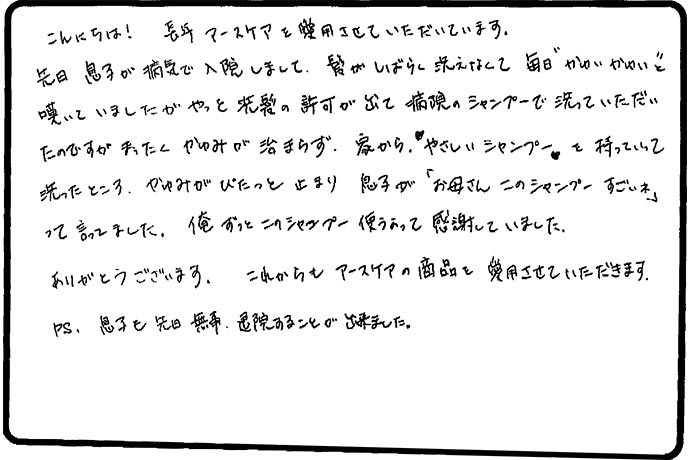 こんにちは! 長年 アースケアを愛用させていただいています。
先日 息子が病気で入院しまして、髪がしばらく洗えなくて 毎日"かゆいかゆい"と
嘆いていましたがやっと洗髪の許可が出て 病院のシャンプーで洗っていただい
たのですがまったくかゆみが治まらず、家から、♥やさしいシャンプー♥を持っていって
洗ったところ、かゆみがぴたっと止まり 息子が「お母さんこのシャンプーすごいネ」
って言ってました。俺ずっとこのシャンプー使うよって感謝していました。
ありがとうございます。 これからもアースケアの商品を愛用させていただきます。
PS、息子も先日無事、退院することが出来ました。